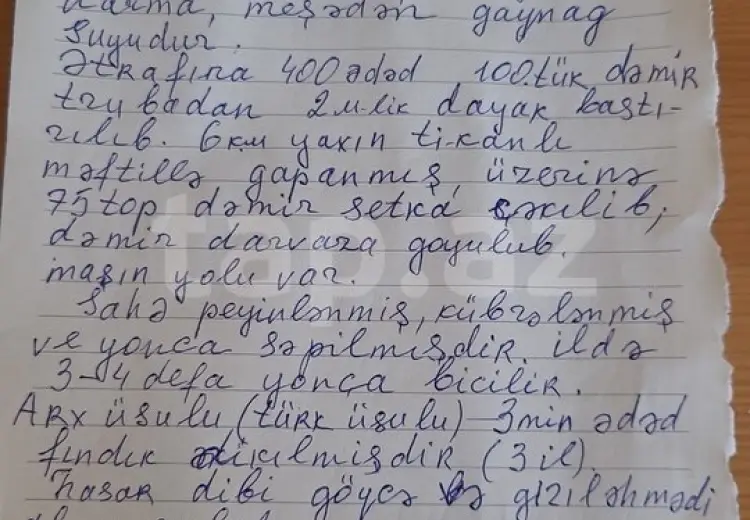 meşədən gaynag
suyudur.
Ətrafına 400 ədəd 100.tük dəmir
trubadan 2 m-lik dayak bastı-
rılıb. 6 км yaxın ti-kanlı
məftillə gapanmış, üzerinə
75 top dəmir setka çəkilib,
dəmir darvaza goyulub.
maşın yolu var.
tap.az
Sahə peyinlənmiş, kübrələnmiş
ve yonca səpilmişdir. ildə
3-4 defa yonça biçilir.
ARX üsulu (türk üsulu) 3 min ədəd
fındık əkilmişdir (3 il).
hasar dibi göyçə və gızıləhmədi